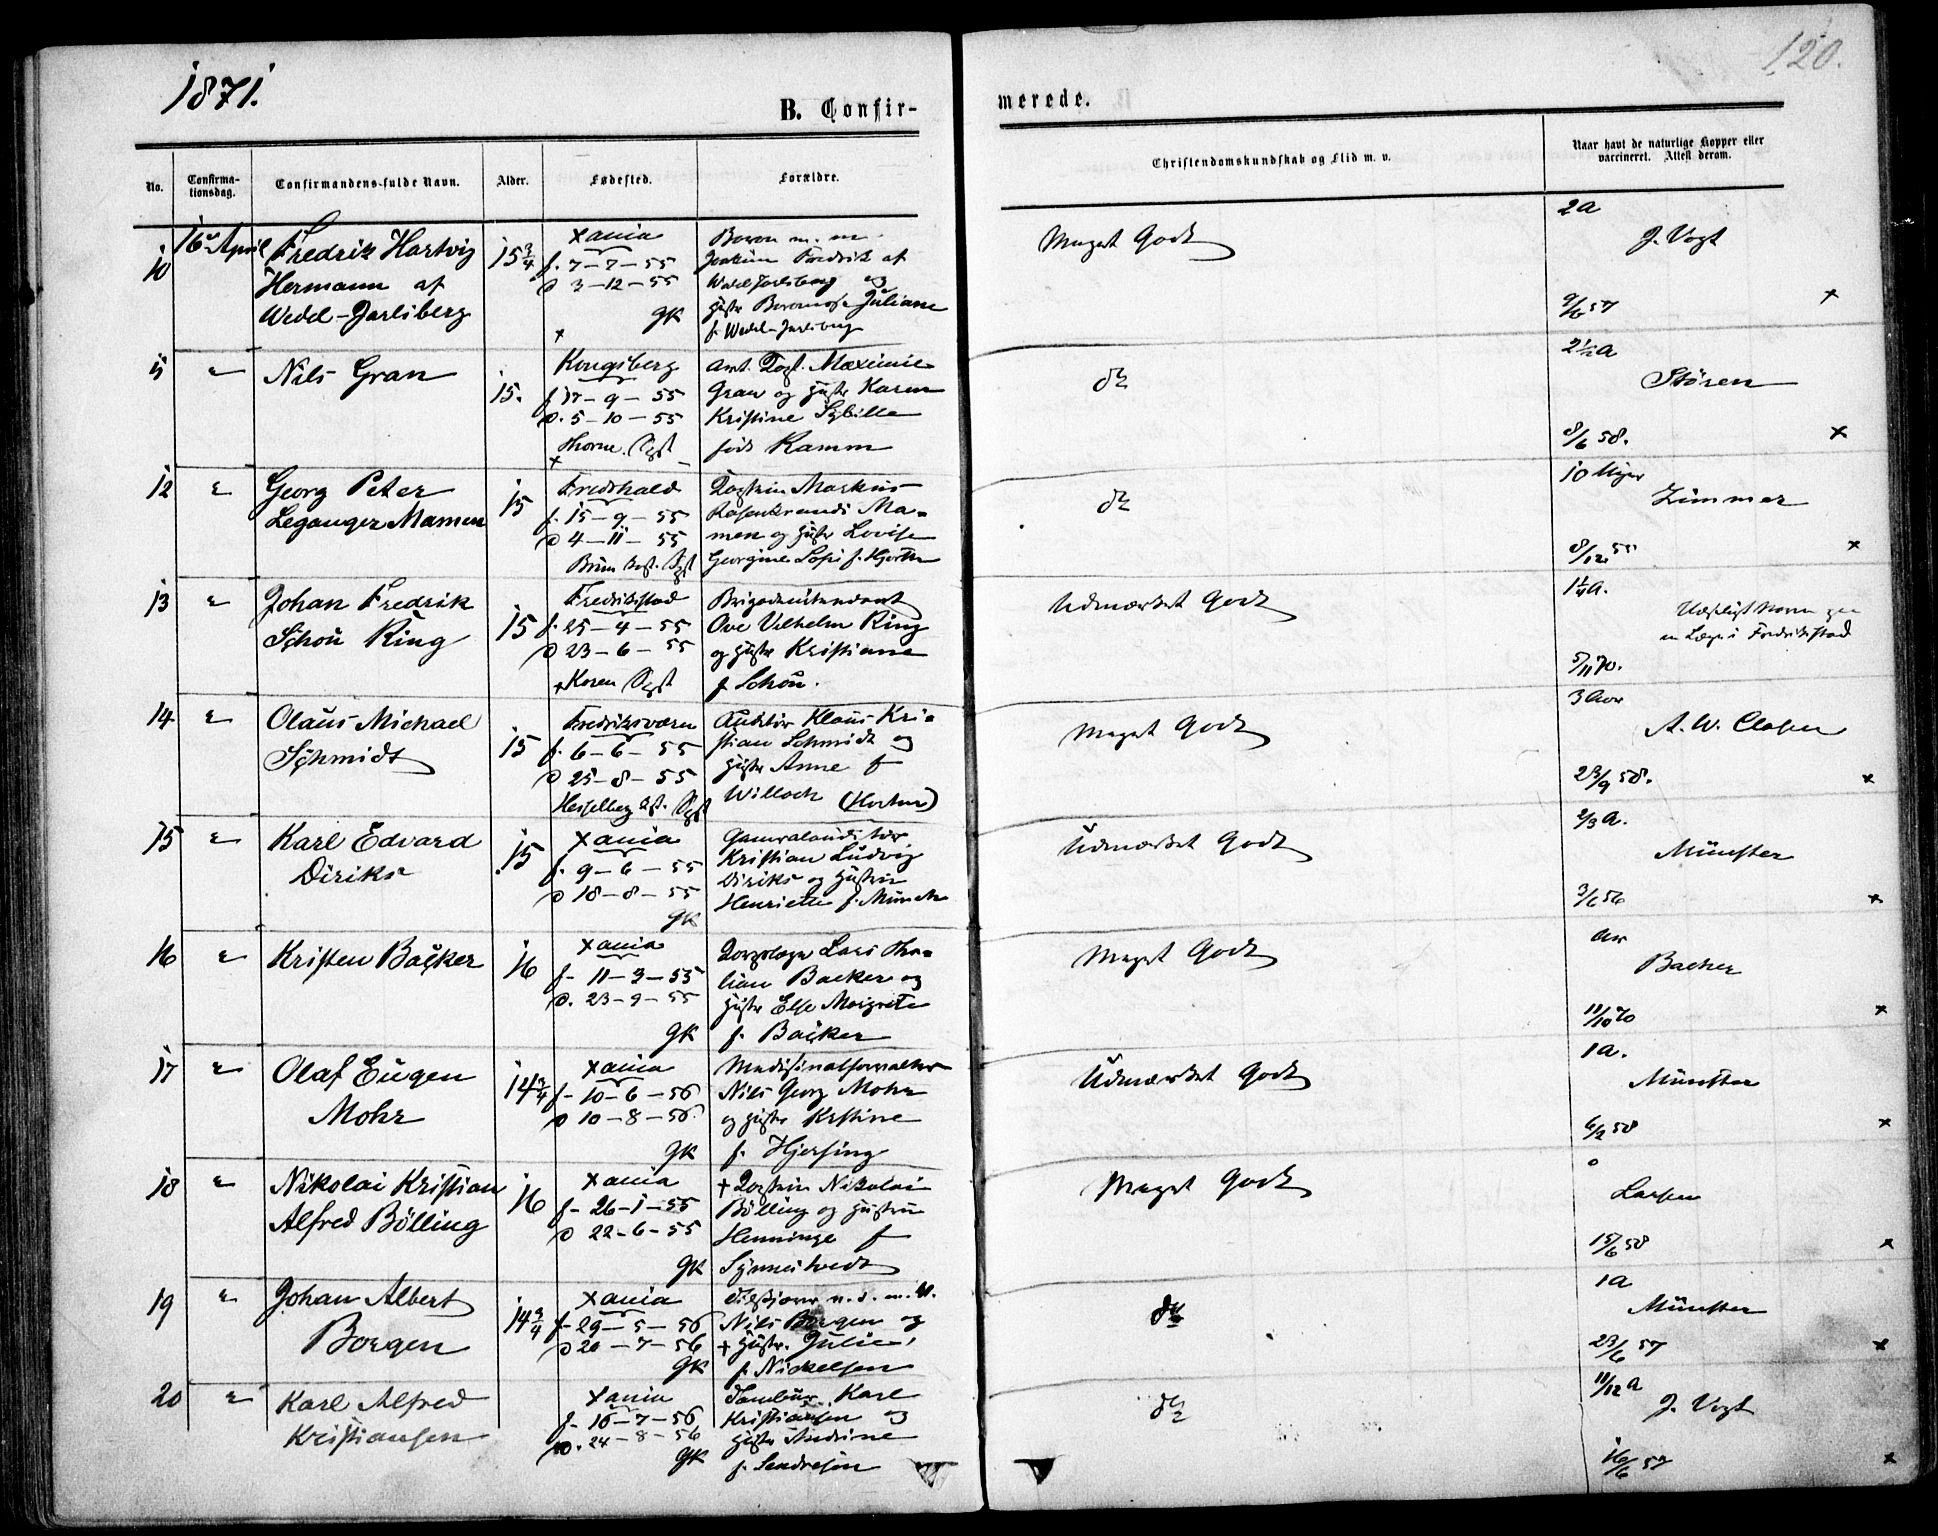 1871.
120.
B. Confir-
merede.
No.
Confirma-
tionsdag.
Confirmandens fulde Navn.
Alder.
Fødested.
Forældre.
Christendomskundskab og Flid m. v.
Naar havt de naturlige Kopper eller
vaccineret. Attest derom.
10
16 April
Fredrik Hartvig
Hermann af
Wedel-Jarlsberg
15 3/4
Xania
f. 7-7-55
D 3-12-55
GK
+
Baron m. m.
Joakim Fredrik af
Wedel Jarlsberg og
Hustr Juliane
f. Wedel-Jarlsberg
Meget Godt
2 a
J. Vogt
9/6 57
+
11
"
Nils Gran
15.
Kongsberg
f 17-9-55
D. 5-10-55
+
Gran og Hustr Karen
Kristine Sybille
født Ramm
do
2 1/2 a
Stören
8/6 58.
+
12
"
Georg Peter
Leganger Mamen
15
Fredrhald
f. 15-9-55
D 4-11-55
Kaptein Markus
Rosenkrands Ma-
men og Hustr Lovise
Georgine Sofie f. Hjorth
do
10 Uger
Zimmer
8/12 55
+
13
"
Johan Fredrik
Schou Ring
15
Fredrikstad
f. 25-4-55
D 23-6-55
+
Ove Vilhelm Ring
og Hustr Kristiane
f Schou.
Udmærket Godt
1 1/4 a.
en Læge i Fredrikstad
5/11 70.
14
"
Olaus Michael
Schmidt
15
Fredriksværn
f. 6-6-55
D 25-8-55
Auditör Klaus Kri-
stian Schmidt og
Hustr Anne f
Willoch (Horten)
Meget Godt
3 Aar
A. W. Clasen
23/9 58.
+
15
"
Karl Edvard
Diriks
15
Xania
f. 9-6-55
D 18-8-55
GK
Generalauditör
Kristian Ludvig
Diriks og Hustru
Henriette f. Munch
Udmærket Godt
2/3 a.
Münster
3/6 56
+
16
"
Kristen Backer
16
Xania
f- 11-3-55
D. 23-9-55
GK
Korpslæge Lars Tho-
Backer og
Hustr Else Margrete
f. Backer
Meget Godt
Aar
Backer
11/10 70
+
17
"
Olaf Eugen
Mohr
14 3/4
Xania
f- 10-6-56
D 10-8-56
GK
Medisinalforvalter
Nils Georg Mohr
og Hustr Kristine
Udmærket Godt
1 a.
Münster
6/2 58
+
18
"
Nikolai Kristian
Alfred Bölling
16
Xania
f- 26-1-55
D 22-6-55
GK
+ Kaptein Nikolai
Bölling og Hustru
Henninge f
Synnestvedt
Meget Godt
0
Larsen
15/6 58
+
19
"
Johan Albert
Borgen
14 3/4
Xania
f- 29-5-56
D 20-7-56
GK
Nils Borgen og
+ Hustr. Julie
f. Nickelsen
do
1 a
Münster
23/6 57
+
20
"
Karl Alfred
Kristiansen
Xania
f- 16-7-56
D. 24-8-56
GK
Tambur Karl
Kristiansen og
Hustr Andrine
do
11/12 a
J. Vogt
16/6 57
+